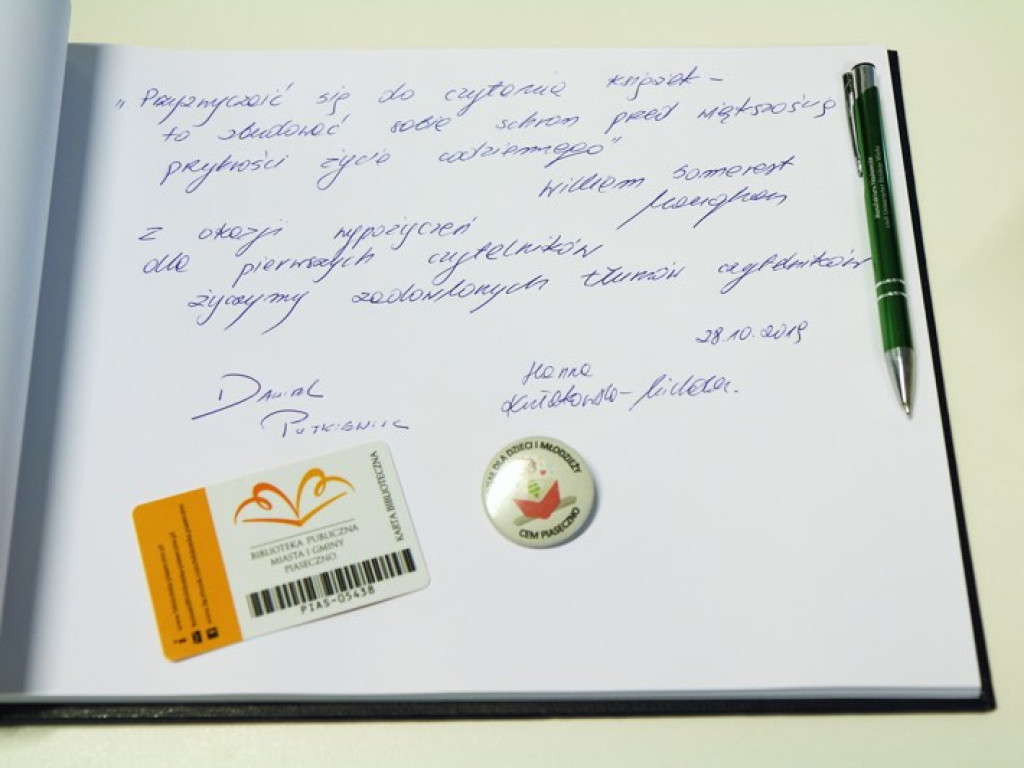 „Przyzwyczaić się do czytania książek –
to zbudować sobie schron przed większością
przykrości życia codziennego"
William Somerset
Maugham
Z okazji wypożyczeń
dla pierwszych czytelników
życzymy zadowolonych tłumów czytelników
28.10.2019
Daniel
Putkiewicz
Hanna
Kułakowska-Michalak
KARTA BIBLIOTECZNA
BIBLIOTEKA PUBLICZNA
MIASTA I GMINY
PIASECZNO
PIAS-05438
DLA DZIECI I MŁODZIEŻY
CEM PIASECZNO